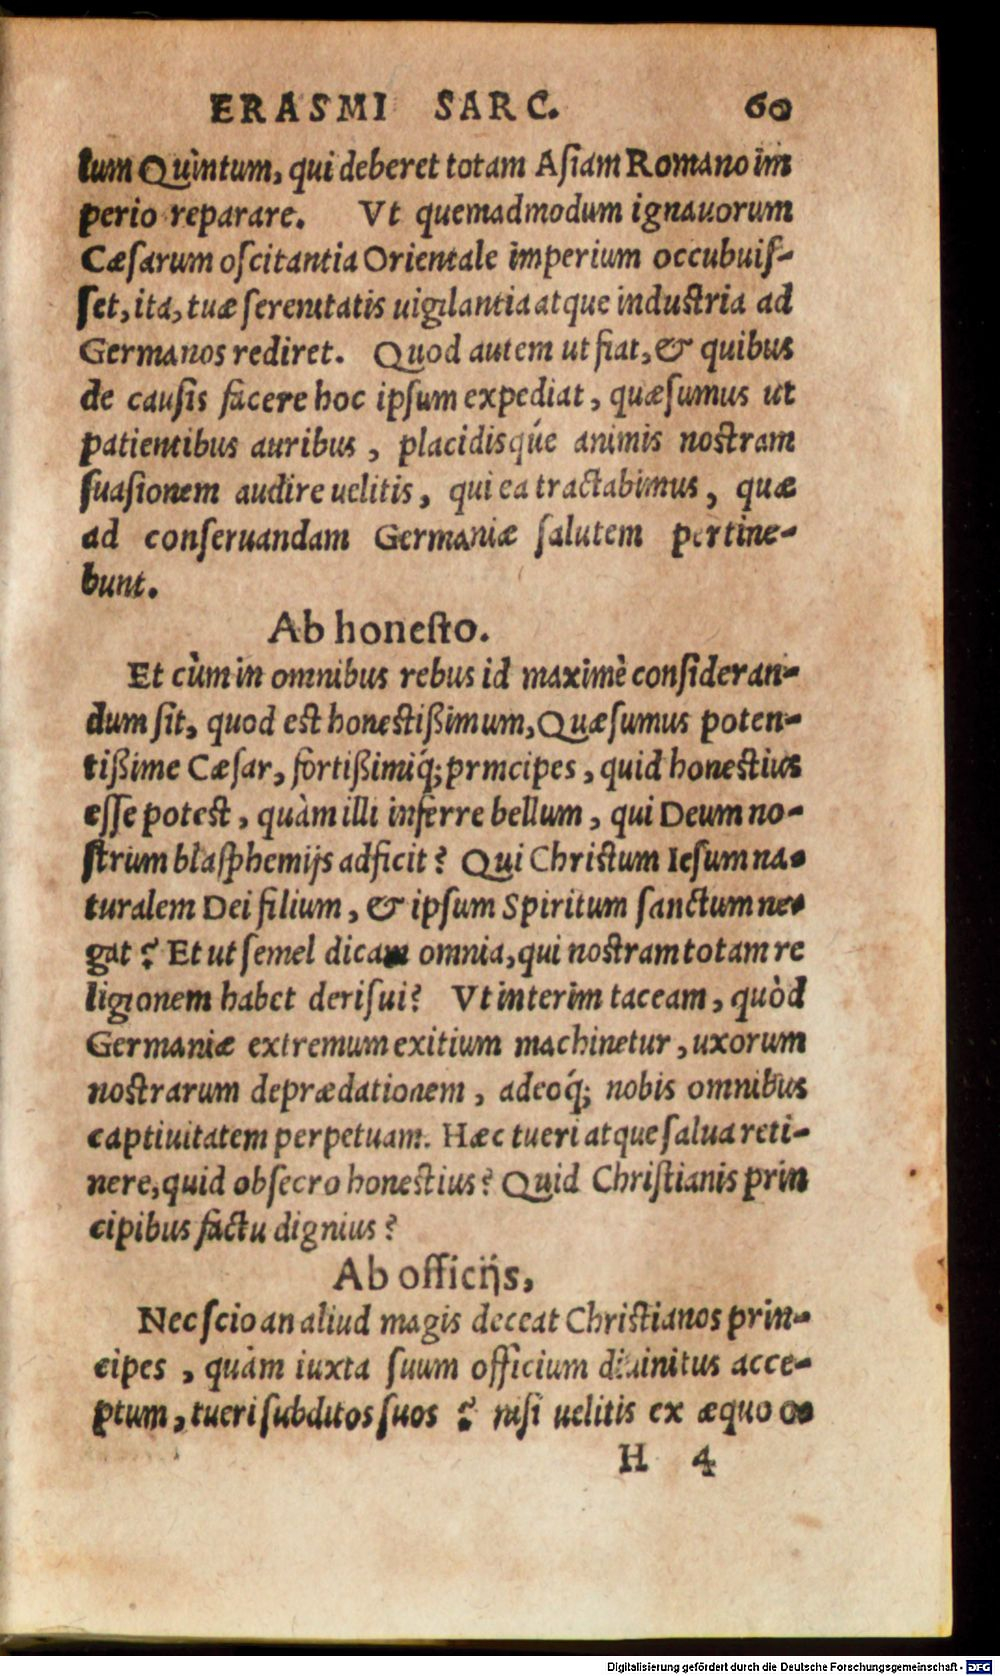 ERASMI SARC. 60
lum Quintum, qui deberet totam Asiam Romano im
perio reparare. Vt quemadmodum ignauorum
Cæsarum oscitantia Orientale imperium occubuis-
set, ita, tuæ serenitatis uigilantia atque industria ad
Germanos rediret. Quod autem ut fiat, & quibus
de causis facere hoc ipsum expediat, quæsumus ut
patientibus auribus, placidisque´ animis nostram
suasionem audire uelitis, qui ea tractabimus, quæ
ad conseruandam Germaniæ salutem pertine-
bunt.
Ab honesto.
Et cùm in omnibus rebus id maximè consideran-
dum sit, quod est honestißimum, Quæsumus poten-
tißime Cæsar, fortißimiq́; principes, quid honestius
esse potest, quàm illi inferre bellum, qui Deum no-
strum blasphemijs adficit? Qui Christum Iesum na-
turalem Dei filium, & ipsum Spiritum sanctum ne-
gat? Et ut semel dicam omnia, qui nostram totam re
ligionem habet derisui? Vt interim taceam, quòd
Germaniæ extremum exitium machinetur, uxorum
nostrarum deprædationem, adeoq́; nobis omnibus
captiuitatem perpetuam. Hæc tueri atque salua reti-
nere, quid obsecro honestius? Quid Christianis prin
cipibus factu dignius?
Ab officijs,
Nec scio an aliud magis deceat Christianos prin-
cipes, quàm iuxta suum officium diuinitus acce-
ptum, tueri subditos suos? nisi uelitis ex æquo
H 4
Digitalisierung gefördert durch die Deutsche Forschungsgemeinschaft - DFG